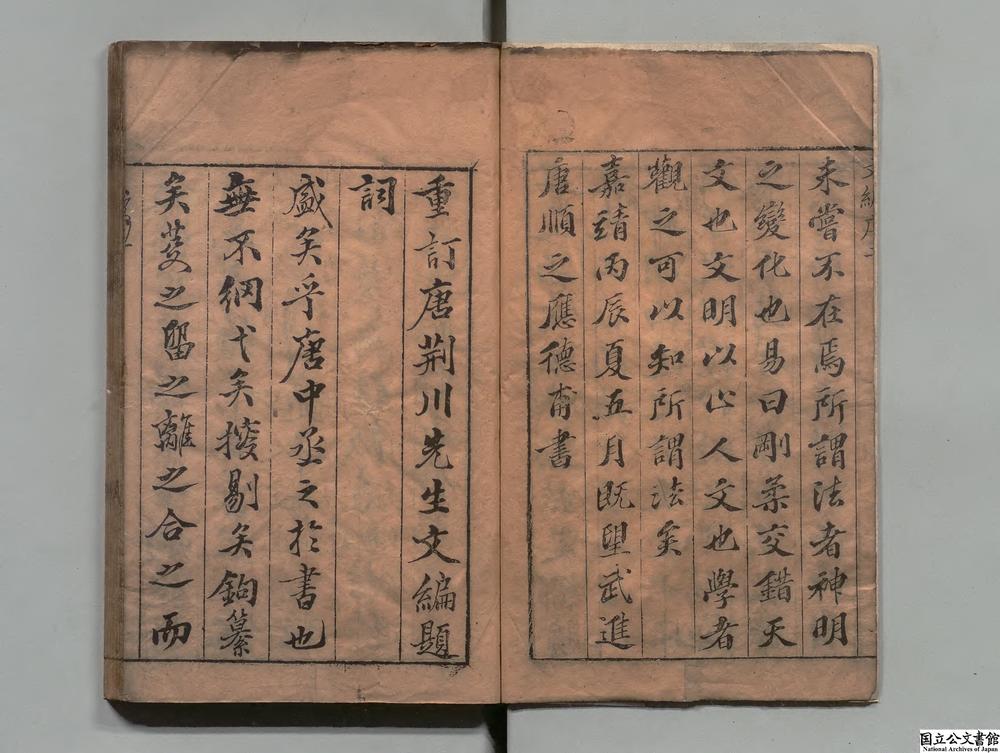 未嘗不在焉所謂法者神明
之變化也易曰剛柔交錯天
文也文明以止人文也學者
觀之可以知所謂法矣
嘉靖丙辰夏五月既望武進
唐順之應德甫書
重訂唐荊川先生文編題
詞
盛矣乎唐中丞之於書也
無不綱弋矣捜剔矣鉤纂
矣芟之留之離之合之而
国立公文書館
National Archives of Japan